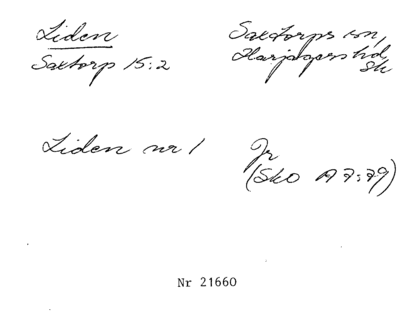 Liden
Saxtorp 15:2
Saxtorps sn,
Harjagers hd,
Sk
Liden nr 1
Jr
(SkO A 7:79)
Nr 21660